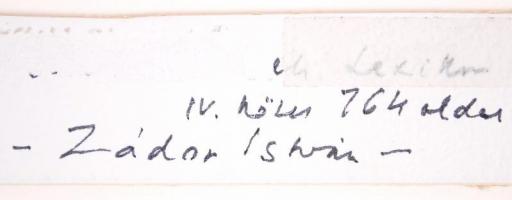 Lexikon
IV. kötet 764 oldal
- Zádor István -